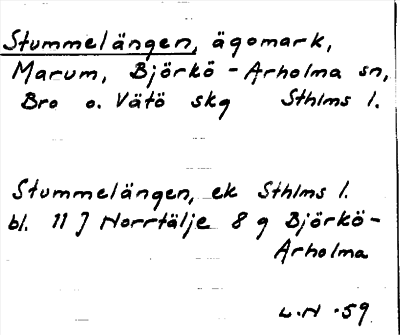 Stummelängen, ägomark,
Marum, Björkö - Arholma sn,
Bro o. Vätö skg Sthlms l.
Stummelängen, ek Sthlms l.
bl. 11 J Norrtälje 8 g Björkö-
Arholma
L.H -59